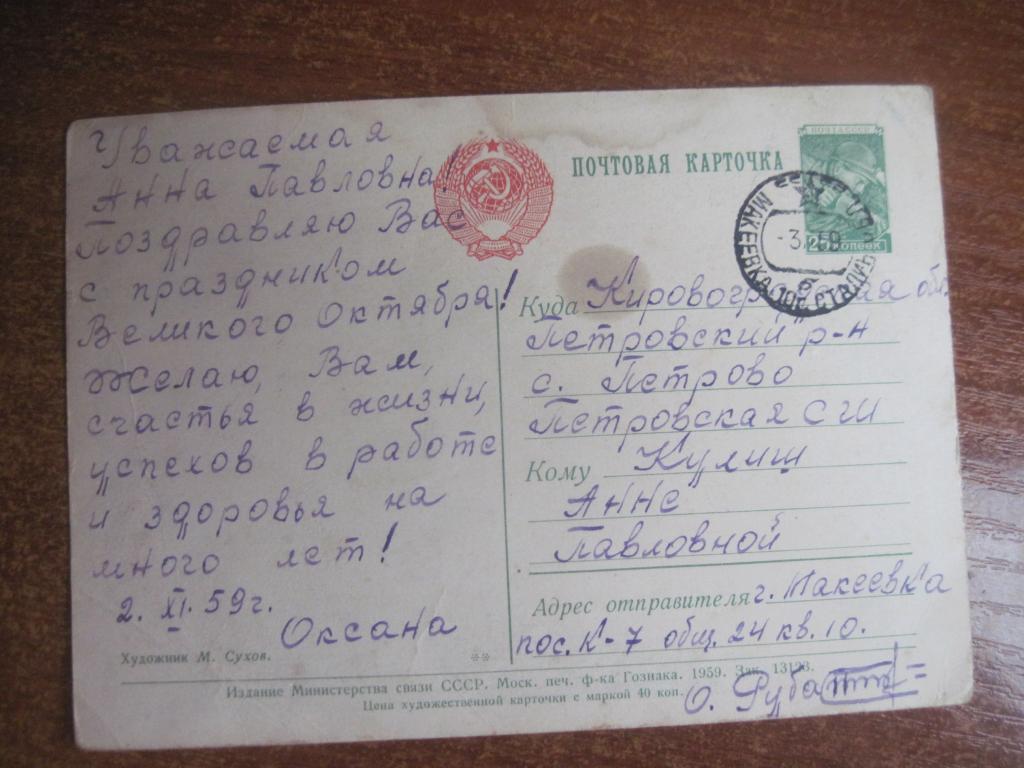 Уважаемая
Анна Павловна!
Поздравляю Вас
с праздником
Великого Октября!
Желаю, Вам,
счастья в жизни,
успехов в работе
и здоровья на
много лет!
2. XI. 59 г.
Оксана
Художник М. Сухов.
ПОЧТОВАЯ КАРТОЧКА
ПОЧТА СССР
25 копеек
МАКЕЕВКА
-3.
59
Куда Кировоградская обл.
Петровский р-н
с. Петрово
Петровская СШ
Кому Кулиш
Анне
Павловной
Адрес отправителя г. Макеевка
пос. К-7 общ. 24 кв. 10.
О.
Издание Министерства связи СССР. Моск. печ. ф-ка Гознака. 1959. Зак. 13123.
Цена художественной карточки с маркой 40 коп.